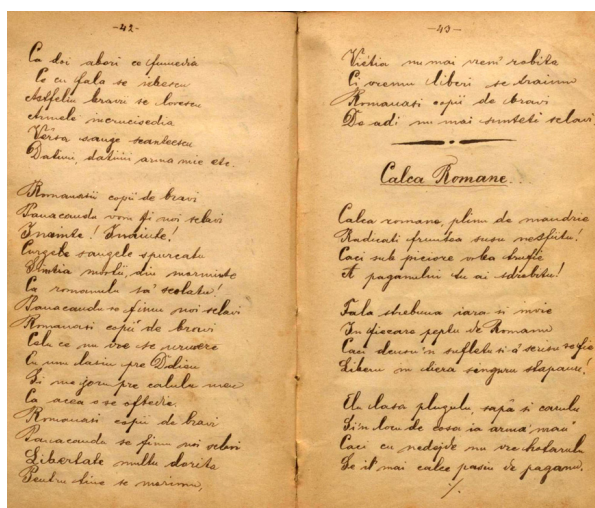 -42-
Ca doi abori ce fumedia
Ce cu fala se iubescu
Astfeliu bravii se lovescu
Armele incrucisedia
Versa sange scantescu
Datimi, datimi arma mie etc.
Romanasii copii de bravi
Panacandu vom fi noi sclavi
Inainte! Inainte!
Curgele sangele spurcatu
Simtia mortii, din morminte
Ca romanulu sa' sculatu!
Panacandu se fimu noi sclavi
Romanasi copii de bravi
Celu ce nu vre se urmere
Cu unu lasim pre Didieu
Si me joru pre calulu meu
Ca acea o se oftedie.
Romanasi copii de bravi
Panacandu se fimu noi sclavi
Libertate multu dorita
Pentru tine se morimu,
-43-
Vietia nu mai vremu robita
Ci vremu liberi se traimu
Romanasi copii de bravi
De adi nu mai sunteti sclavi
Calca Romane...
Calca romane, plinu de mandrie
Radicati fruntea susu nesfiitu!
Caci sub piciore volea trufie
A paganului tu ai sdrobitu!
Fala strebuna iara si invie
In fiecare peptu de Romanu
Caci deusu'n sufletu si-a scrisu se fie
Liberu in tiera singuru stapanu!
Elu lasa plugulu, sapa si carulu
Si'n locu de cosa ia arma'n mau'
Caci cu nedejde nu vre hotarulu
Se il mai calce pasiu de paganu.
·/.